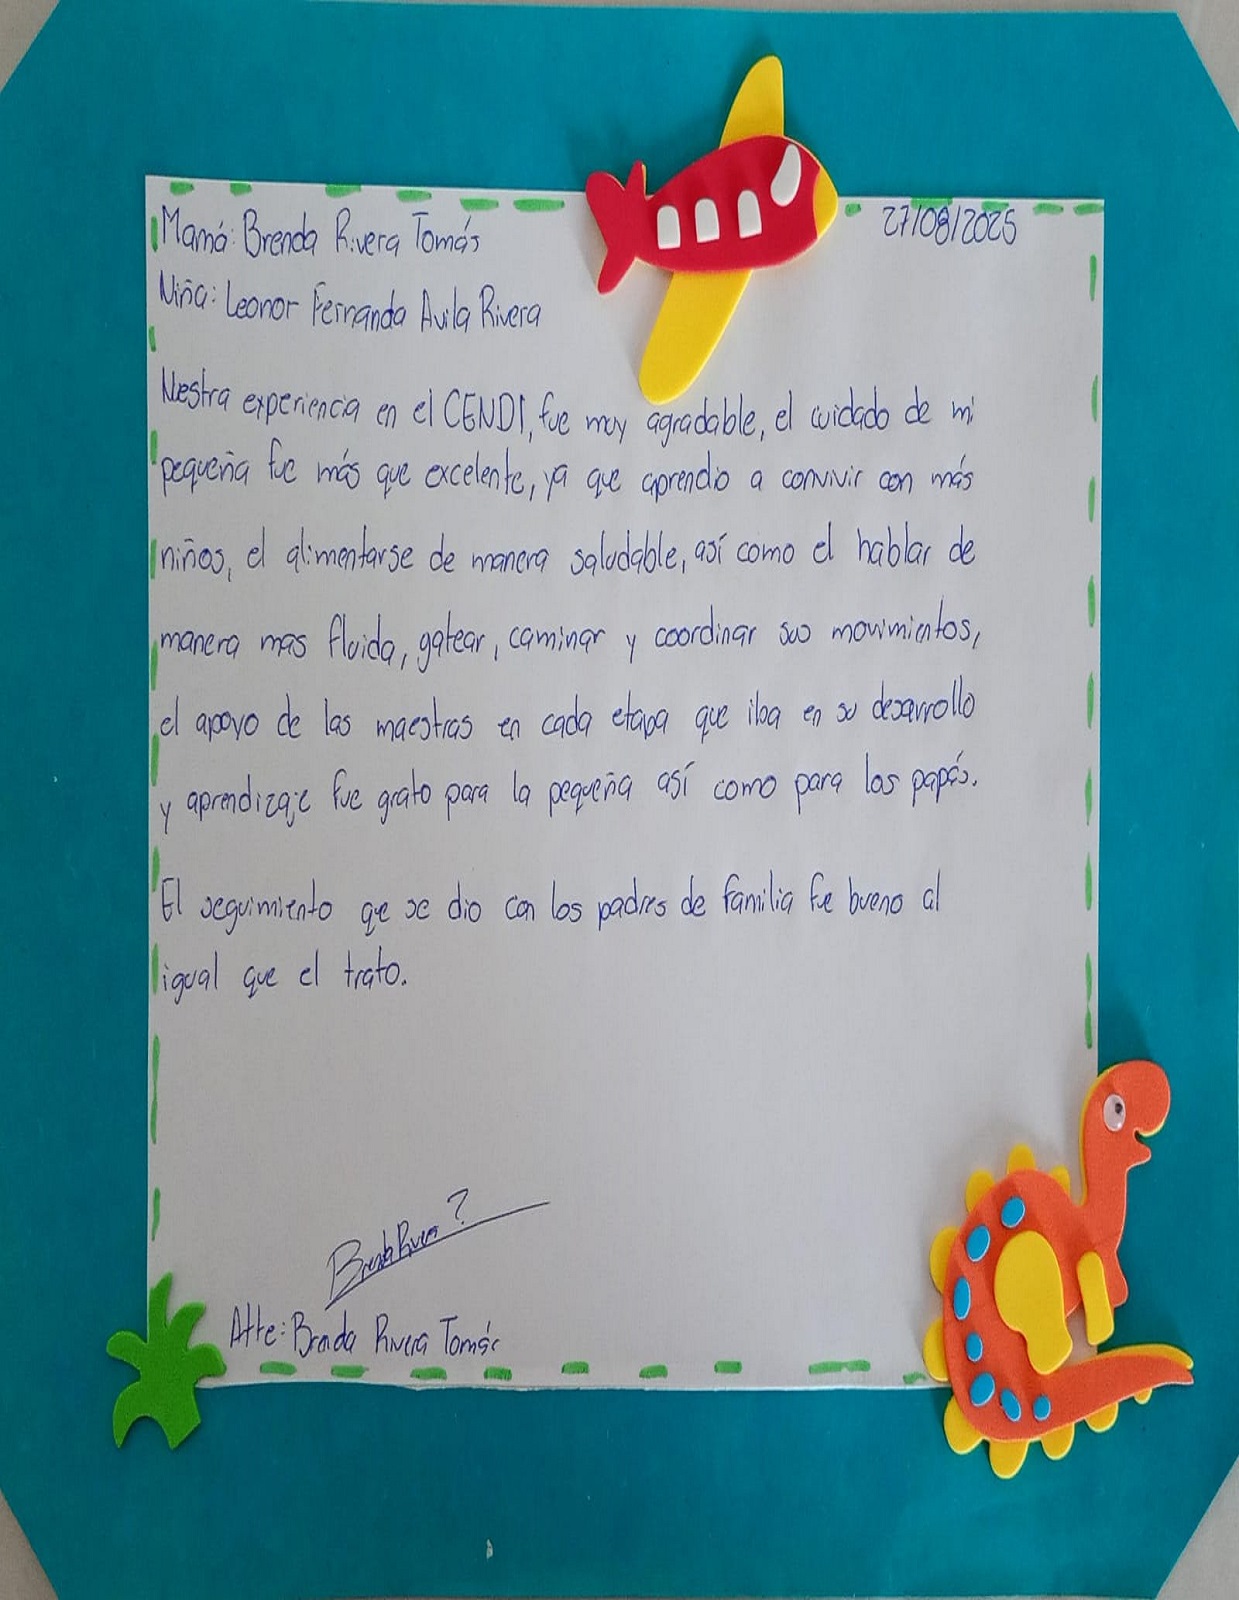 27/08/2025
Mamá: Brenda Rivera Tomás
Niña: Leonor Fernanda Avila Rivera
Nuestra experiencia en el CENDI, fue muy agradable, el cuidado de mi
pequeña fue más que excelente, ya que aprendio a convivir con más
niños, el alimentarse de manera saludable, así como el hablar de
manera mas fluida, gatear, caminar y coordinar sus movimientos,
el apoyo de las maestras en cada etapa que iba en su desarrollo
y aprendizaje fue grato para la pequeña así como para los papás.
El seguimiento que se dio con los padres de familia fue bueno al
igual que el trato.
Brenda Rivera
Atte: Brenda Rivera Tomás